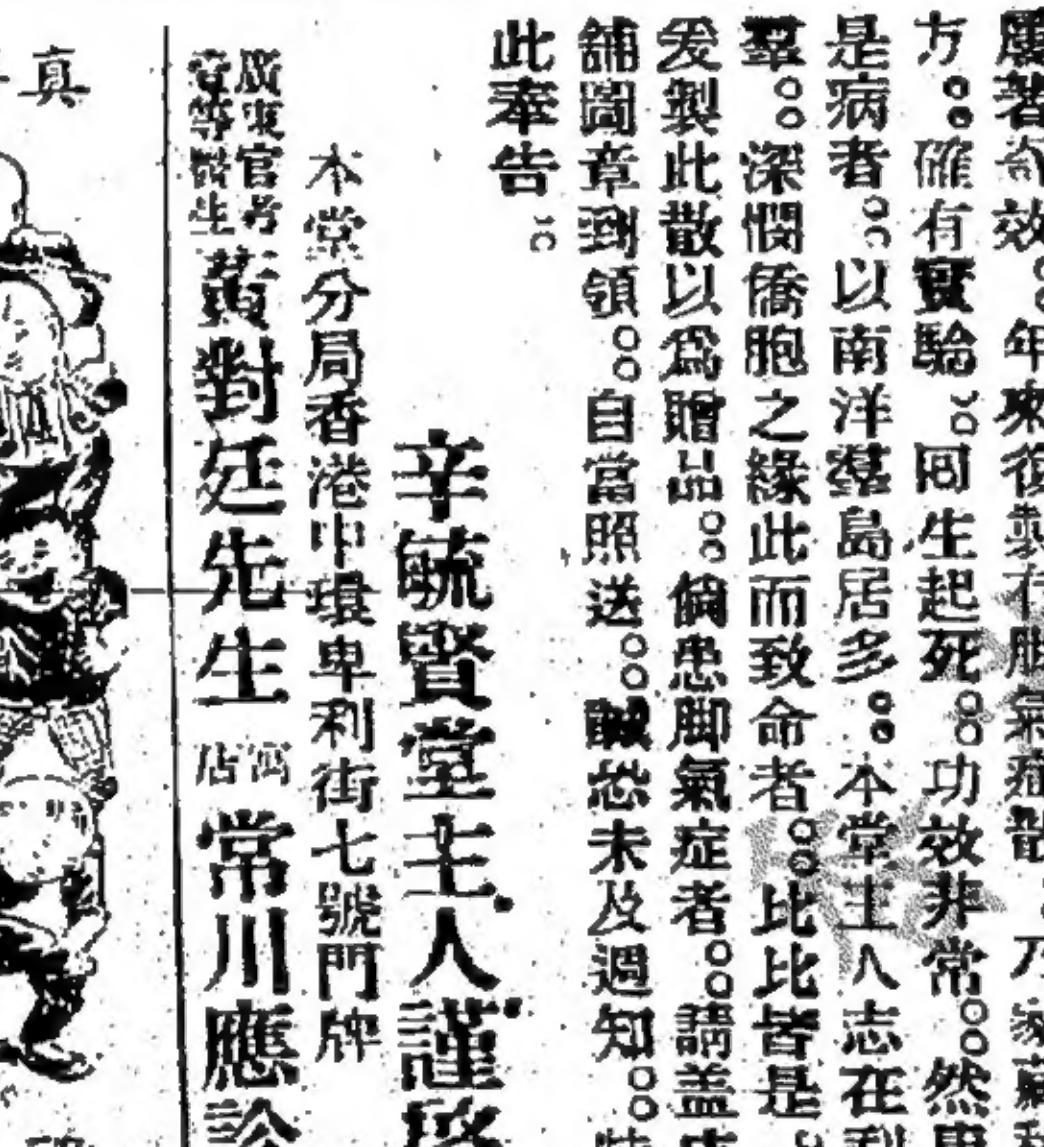 屢著奇效。年來復製有脚氣症散。乃家藏
方。確有實驗。同生起死。功效非常。然患
是病者。以南洋羣島居多。本堂主人志在利
羣。深憫僑胞之緣此而致命者。比比皆是。
爰製此散以爲贈品。倘患脚氣症者。請盖
舖圖章到領。自當照送。誠恐未及週知。特
此奉告。
辛毓賢堂主人謹啓
本堂分局香港中環卑利街七號門牌
廣東官考
壹等醫生
黃對廷先生 寓店 常川應診
真